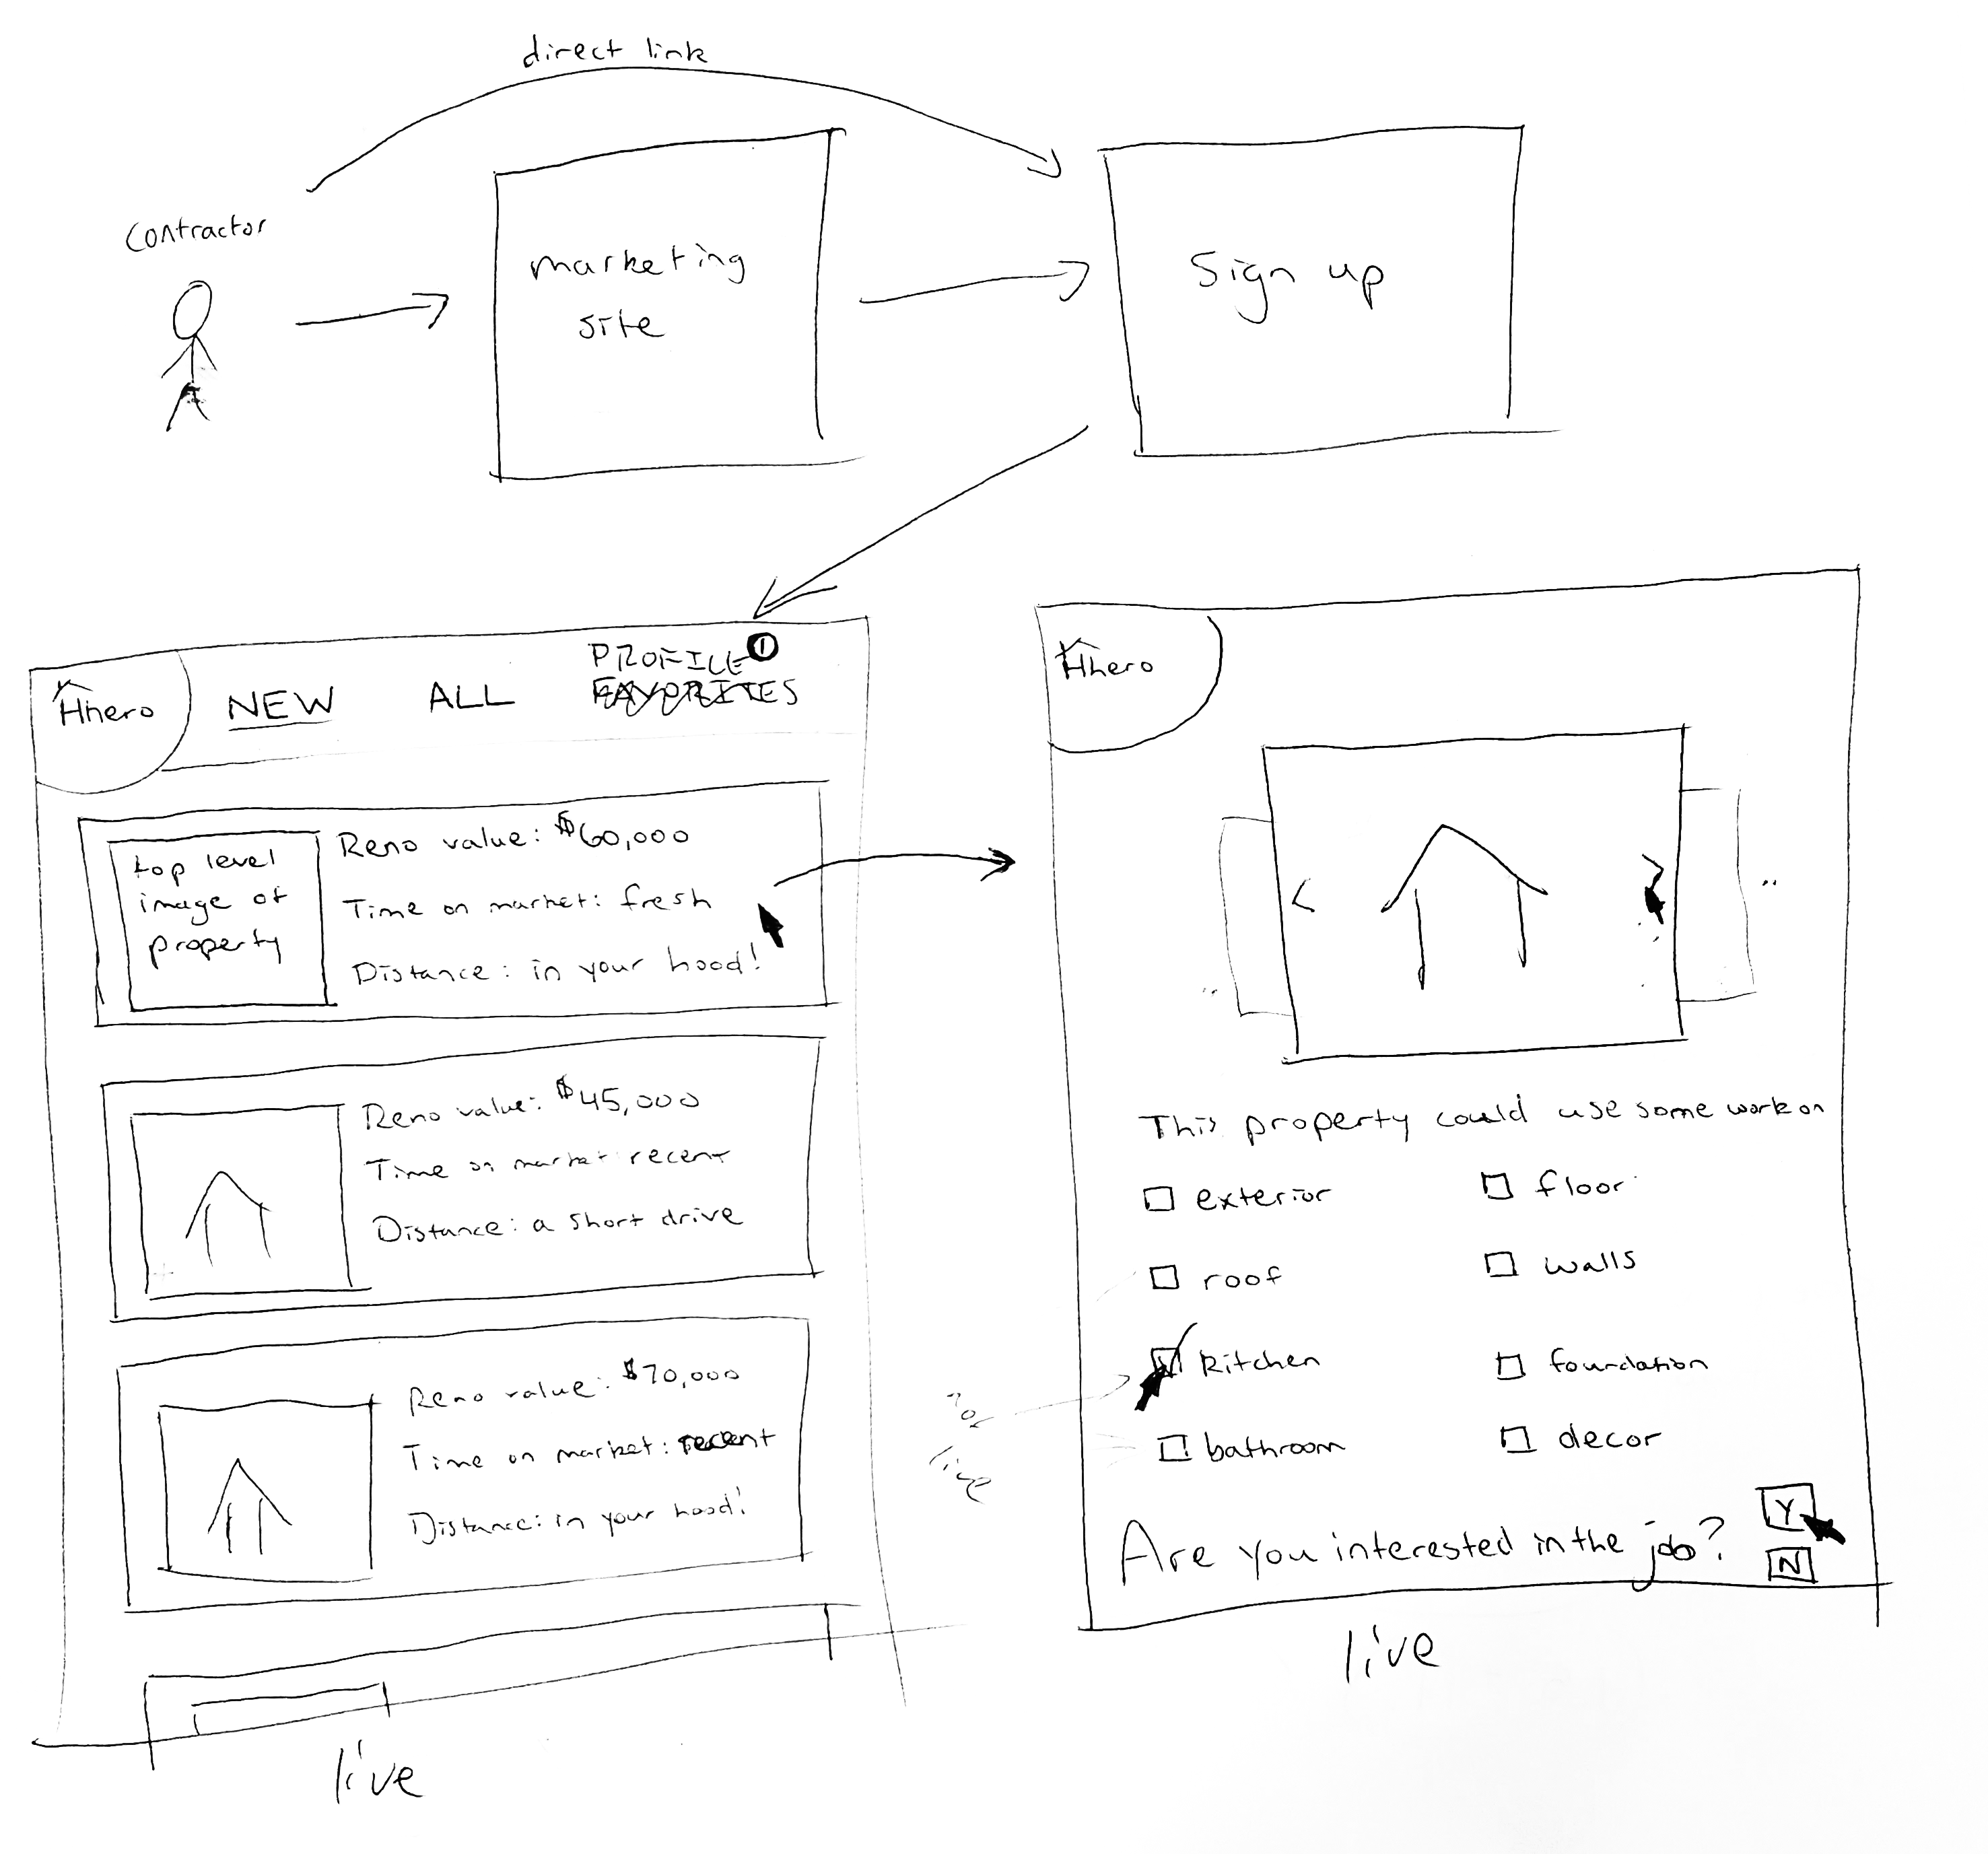 direct link
contractor
marketing
site
Sign up
Hhero
NEW
ALL
PROFILE 1
FAVORITES
top level
image of
property
Reno value: $60,000
Time on market: fresh
Distance: in your hood!
Reno value: $45,000
Time on market: recent
Distance: a short drive
Reno value: $70,000
Time on market: recent
Distance: in your hood!
live
Hhero
< >
This property could use some work on
exterior
floor
roof
walls
kitchen
foundation
bathroom
decor
not
live
Are you interested in the job?
Y
N
live